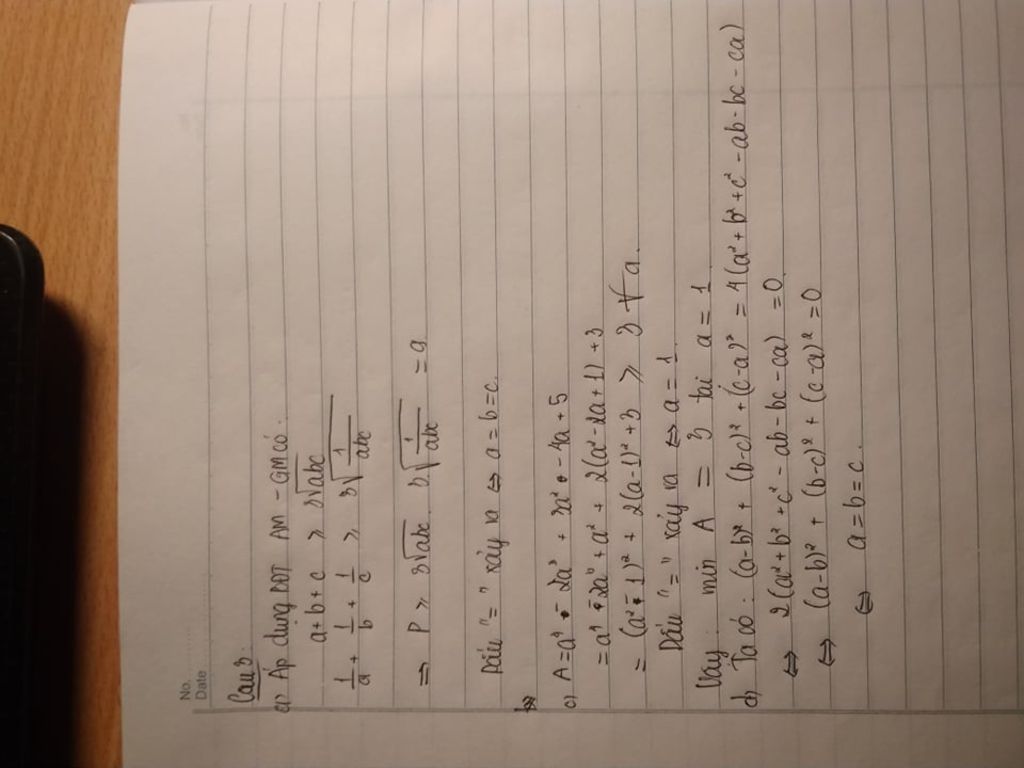 No.
Date
Câu 3:
a) Áp dụng BĐT AM - GM có:
a + b + c ≥ 3∛abc
1/a + 1/b + 1/c ≥ 3∛(1/abc)
⇒ P ≥ 3∛abc . 3∛(1/abc) = 9
Dấu "=" xảy ra ⇔ a = b = c.
c) A = a⁴ - 2a³ + 3a² - 4a + 5
= a⁴ - 2a³ + a² + 2(a² - 2a + 1) + 3
= (a² - 1)² + 2(a-1)² + 3 ≥ 3 ∀ a.
Dấu "=" xảy ra ⇔ a = 1.
Vậy: min A = 3 tại a = 1
d) Ta có: (a-b)² + (b-c)² + (c-a)² = 4(a² + b² + c² - ab - bc - ca)
⇔ 2(a² + b² + c² - ab - bc - ca) = 0
⇔ (a-b)² + (b-c)² + (c-a)² = 0
⇔ a = b = c.